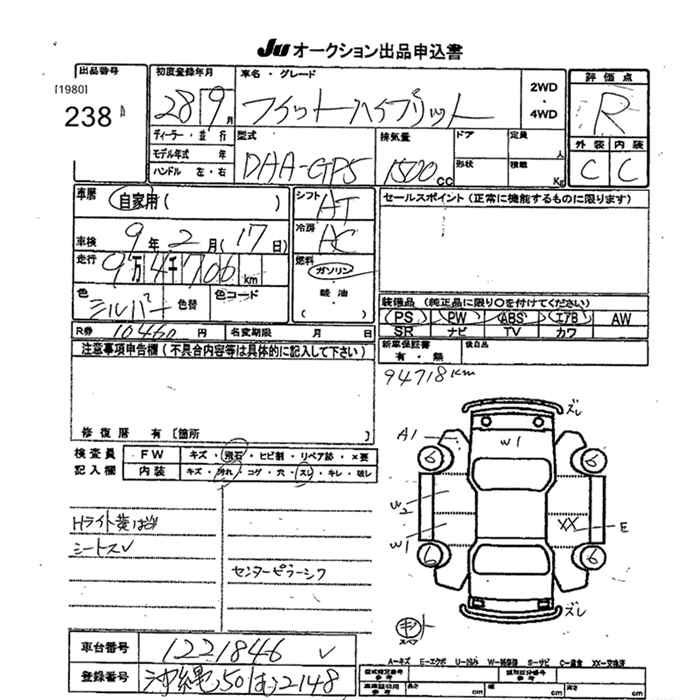 JU オークション出品申込書
出品番号
[1980]
238
初度登録年月
28 9月
車名・グレード
フィットハイブリット
2WD
・
4WD
評価点
R
ディーラー・並行
モデル年式 年
ハンドル 左・右
型式
DAA-GP5
排気量
1500cc
ドア
形状
定員
人
積載
Kg
外装 内装
C C
車歴
自家用( )
シフト
AT
セールスポイント(正常に機能するものに限ります)
車検
9年2月(17日)
冷房
AC
走行
9万4千706km
燃料
ガソリン
軽油
・
( )
色
シルバー
色替
色コード
装備品 (純正品に限り○を付けてください)
(PS) (PW) (ABS) (エアB) AW
SR ナビ TV カワ
R券 10460円 名変期限 月 日
新車保証書
有・無
後日品
注意事項申告欄(不具合内容等は具体的に記入して下さい)
94718km
修復歴 有〔箇所 〕
検査員
記入欄
FW キズ・飛石・ヒビ割・リペア跡・×要
内装 キズ・汚れ・コゲ・穴・スレ・キレ・破レ
ズレ
A1
W1
6 6
W2
W1
XX E
6 6
ズレ
Hライト黄ばみ
シートスレ
センターピラーシワ
キット
スペア
車台番号 1221846
登録番号 沖縄501む2148
A-キズ E-エクボ U-凹み W-補修跡 S-サビ C-腐食 XX-交換済
参考
長さ cm 幅 cm 高さ cm